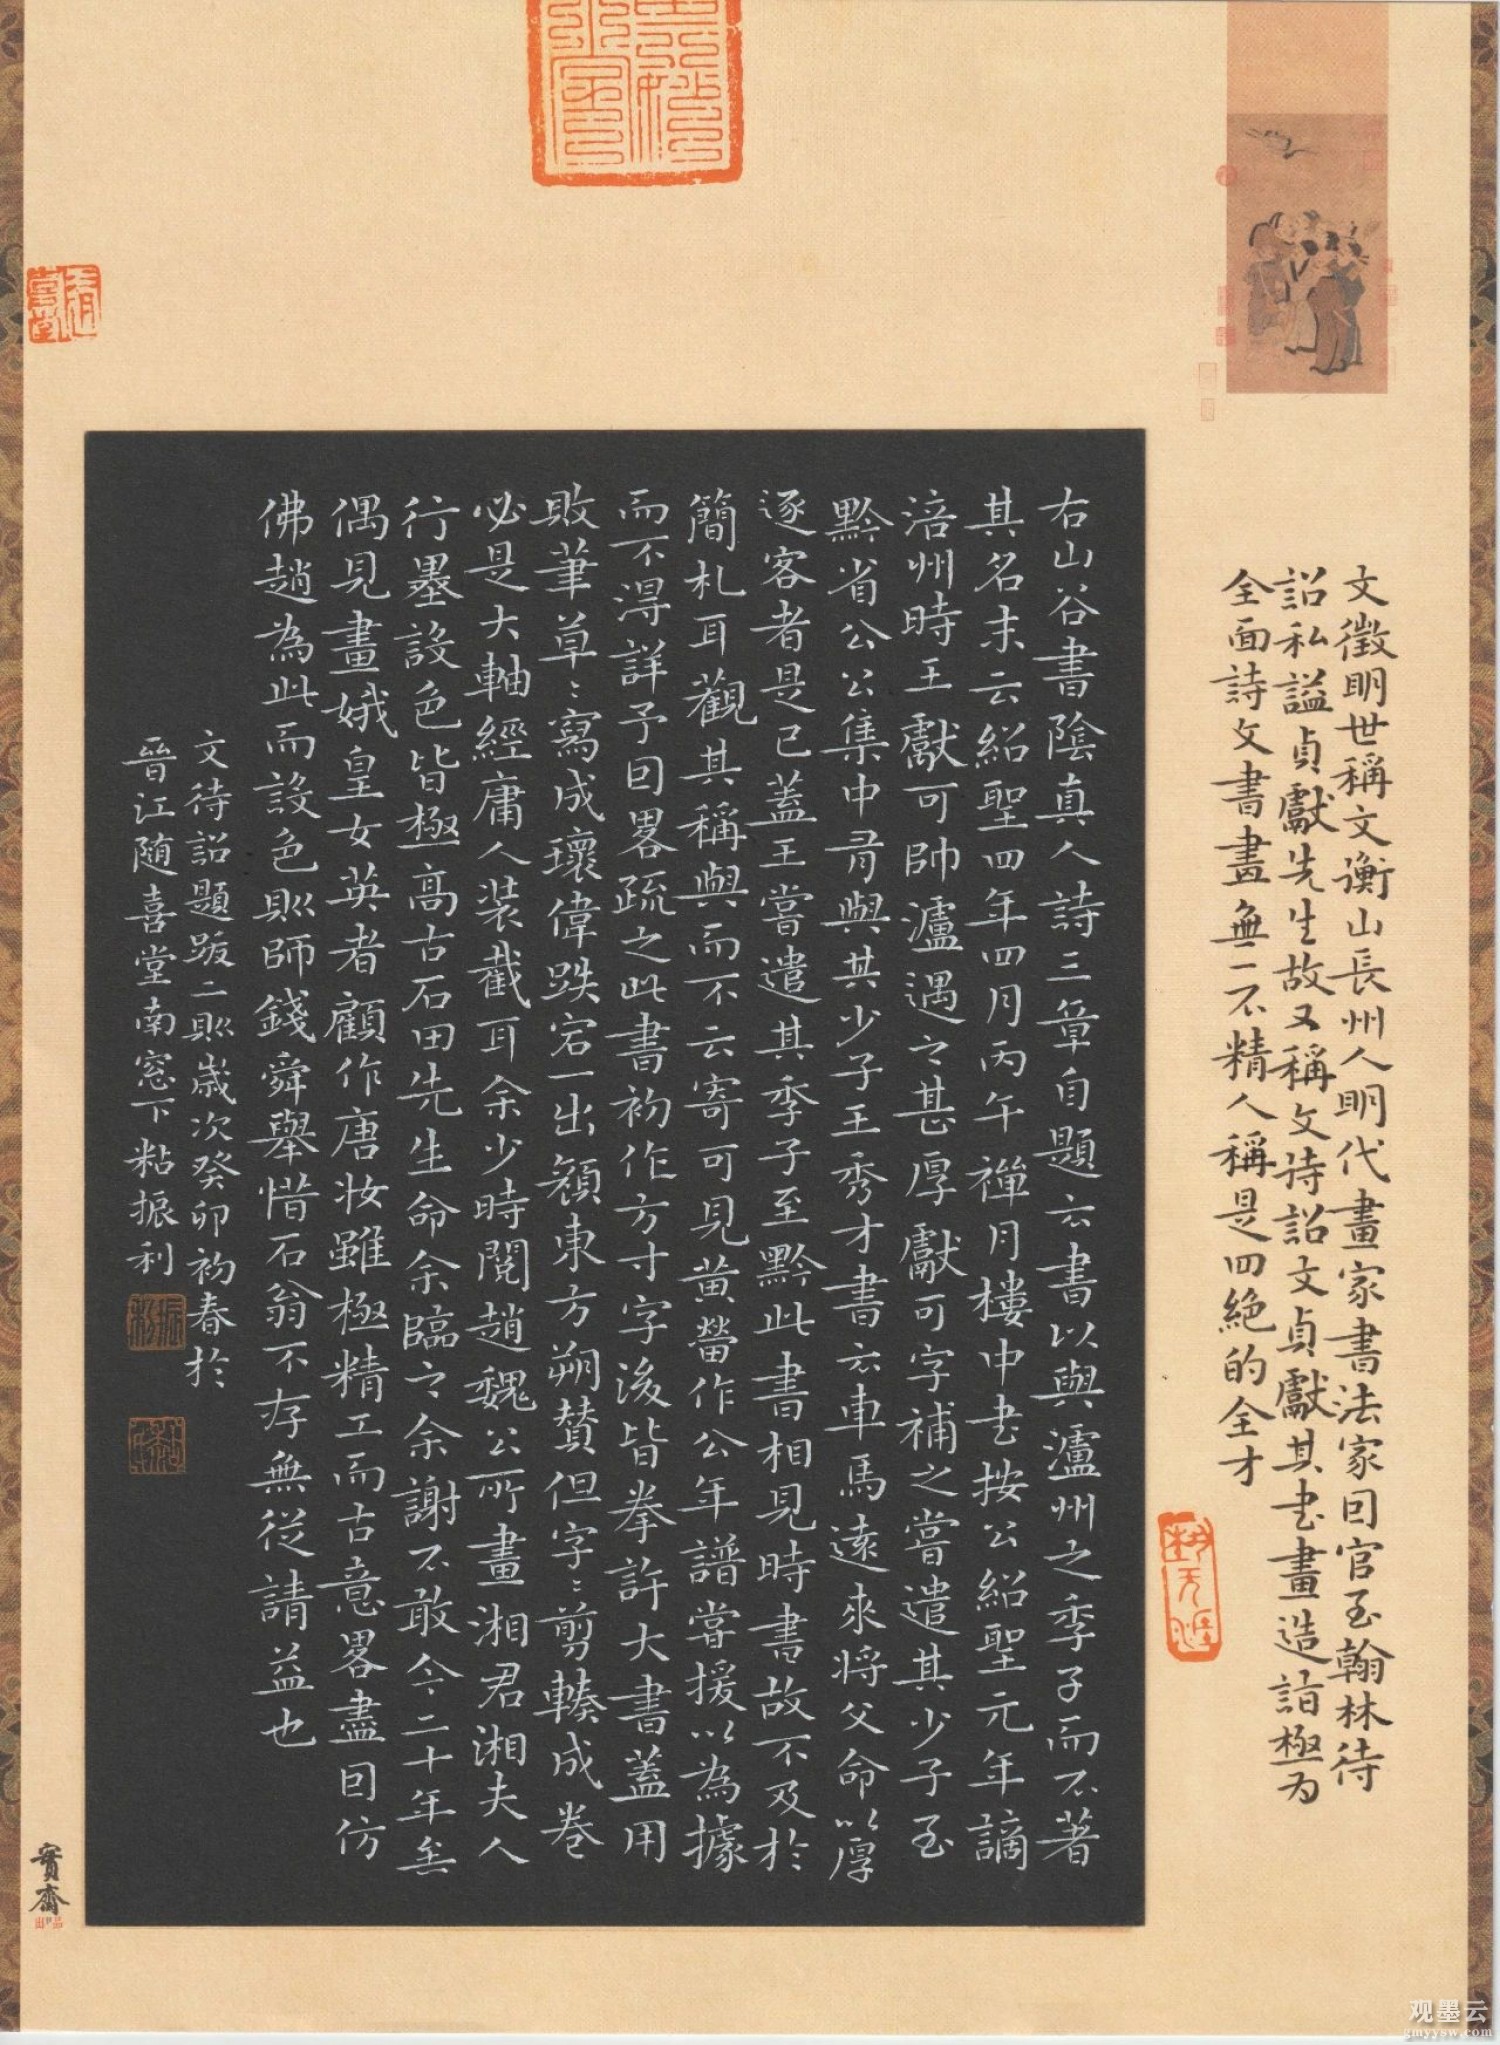 文徵明世稱文衡山長州人明代畫家書法家囙官至翰林待
詔私謚貞獻先生故又稱文待詔文貞獻其书畫造詣極为
全面詩文書畫無一不精人稱是四絶的全才
右山谷書陰真人詩三章自題云書以與瀘州之季子而不著
其名末云紹聖四年四月丙午禪月樓中书按公紹聖元年謫
涪州時王獻可帥瀘遇之甚厚獻可字補之嘗遣其少子至
黔省公公集中有與其少子王秀才書云車馬遠來將父命以厚
逐客者是已蓋王嘗遣其季子至黔此書相見時書故不及於
簡札耳觀其稱與而不云寄可見黄㽦作公年譜嘗援以為據
而不得詳予囙畧疏之此書初作方寸字後皆拳許大書蓋用
敗筆草〻寫成瓌偉跌宕一出顏東方朔賛但字〻剪輳成卷
必是大軸經庸人装截耳余少時閲趙魏公所畫湘君湘夫人
行墨設色皆極高古石田先生命余臨之余謝不敢今二十年矣
偶見畫娥皇女英者顧作唐妝雖極精工而古意畧盡囙仿
佛趙為此而設色則師錢舜舉惜石翁不存無從請益也
文待詔題跋二則歲次癸卯初春於
晉江随喜堂南窓下粘振利
實齋
出品
观墨云
gmyysw.com